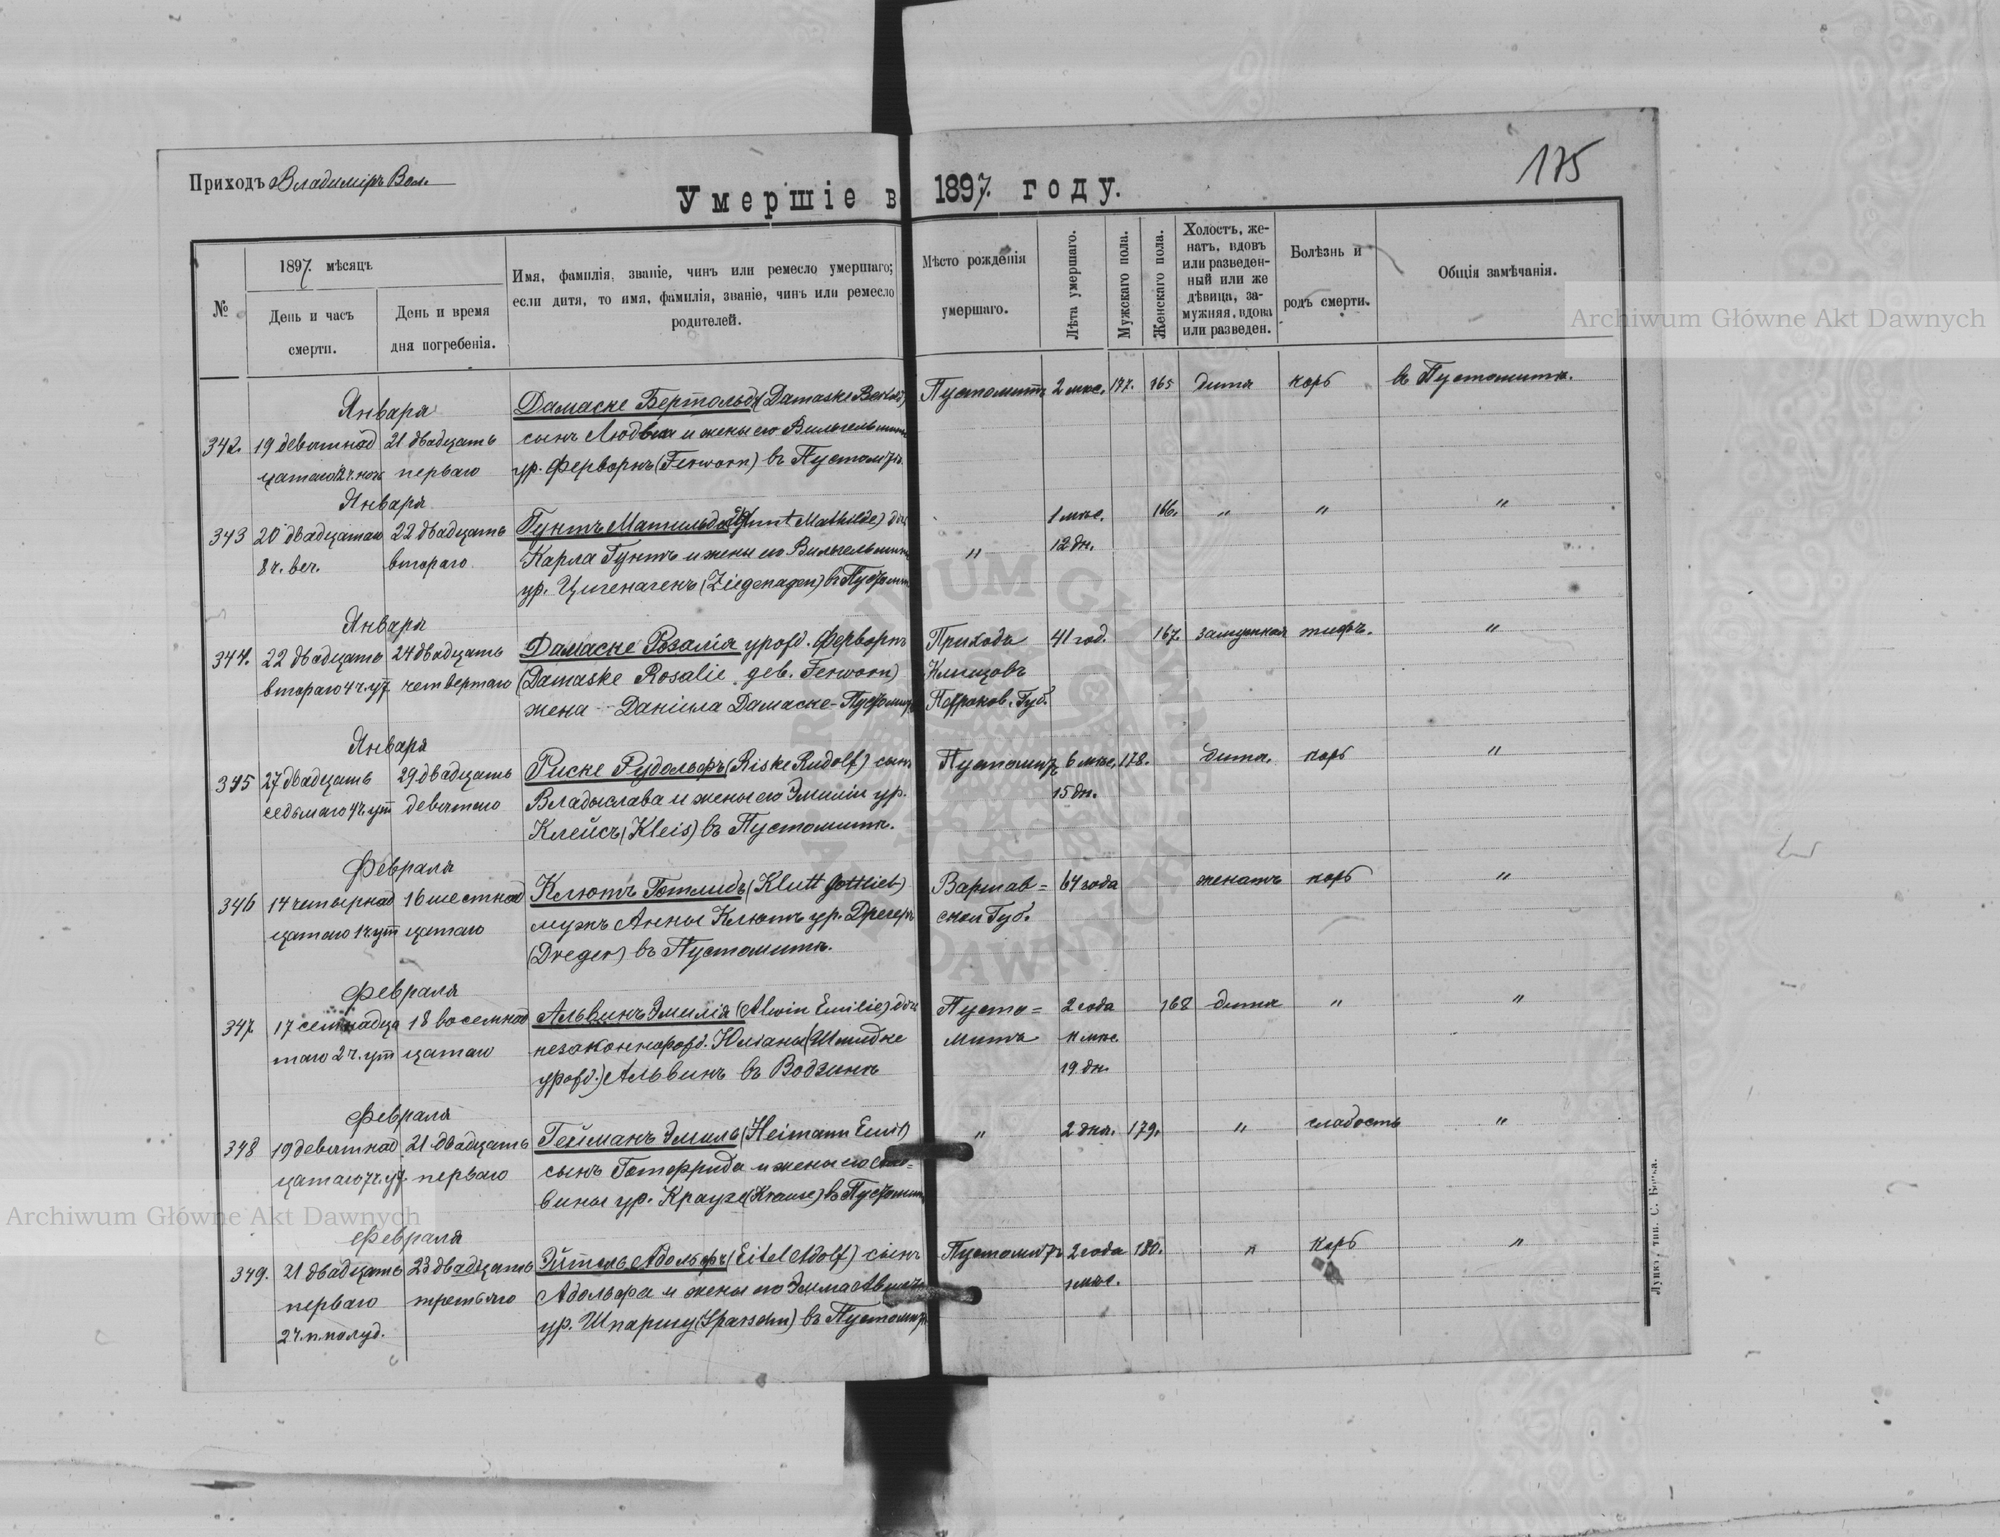 Приходъ Владиміръ Вол.
175
Умершіе в 1897. году.
№
1897. мѣсяцъ
День и часъ смерти.
День и время дня погребенія.
Имя, фамилія, званіе, чинъ или ремесло умершаго;
если дитя, то имя, фамилія, званіе, чинъ или ремесло
родителей.
Мѣсто рожденія
умершаго.
Лѣта умершаго.
Мужскаго пола.
Женскаго пола.
Холостъ, же-
натъ, вдовъ
или разведен-
ный или же
дѣвица, за-
мужняя, вдова
или разведен.
Болѣзнь и
родъ смерти.
Общія замѣчанія.
Archiwum Główne Akt Dawnych
Января
342. 19 девятнад 21 двадцать Дамаске Бертольдъ (Damaske Bertold) Пустомитъ 2 мѣс. 177. 165 дитя корь въ Пустомитѣ.
цатаго 2 ч. первого сынъ Людвига и жены его Вильгельмины
ур. Ферворнъ (Ferworn) въ Пустомитѣ
Января
343 20 двадцатаго 22 двадцать Гунтъ Матильда (Gunt Mathilde) дочь 1 мѣс. 166. " " "
8 ч. веч. второго Карла Гунтъ и жены его Вильгельмины " 12 дн.
ур. Цигенагенъ (Ziegenagen) въ Пустомитѣ
Января
344. 22 двадцать 24 двадцать Дамаске Розалія урожд. Ферворнъ Прихода 41 год. 167. замужняя тифъ. "
втораго 4 ч. ут. четвертаго (Damaske Rosalie geb. Ferworn)
жена Даніила Дамаске - Пустомитъ Петроков. Губ.
Января
345 27 двадцать 29 двадцать Риске Рудольфъ (Riske Rudolf) сынъ Пустомитъ 6 мѣс. 178. дитя. корь "
седьмаго 4 ч. ут девятаго Владыслава и жены его Эмиліи ур. 15 дн.
Клейсъ (Kleis) въ Пустомитѣ.
Февраля
346 14 четырнад 16 шестнад Клютъ Готлибъ (Klutt Gottlieb) Варшав= 64 года женатъ корь "
цатаго 1 ч. ут цатаго мужъ Анны Клютъ ур. Дрегеръ ской Губ.
(Dreger) въ Пустомитѣ.
Февраля
347. 17 семнадца 18 восемнад Альвинъ Эмилія (Alwin Emilie) дочь Пусто= 2 года 168 дитя " "
таго 2 ч. ут цатаго незаконнорожд. Юліаны (Шмидке митъ 11 мѣс.
урожд.) Альвинъ въ Водзинѣ 19 дн.
Февраля
348 19 девятнад 21 двадцать Гейманъ Эмиль (Heimann Emil) " 2 дня. 179. " слабость "
цатаго 7 ч. ут. перваго сынъ Готфрида и жены его
вины ур. Краузе (Krause) въ Пустомитѣ
Февраля
349. 21 двадцать 23 двадцать Эйтель Адольфъ (Eitel Adolf) сынъ Пустомитъ 2 года 180. " корь "
перваго третьяго Адольфа и жены его 1 мѣс.
2 ч. п. полуд. ур. въ Пустомитѣ
Archiwum Główne Akt Dawnych
ARCHIWUM GŁÓWNE AKT DAWNYCH